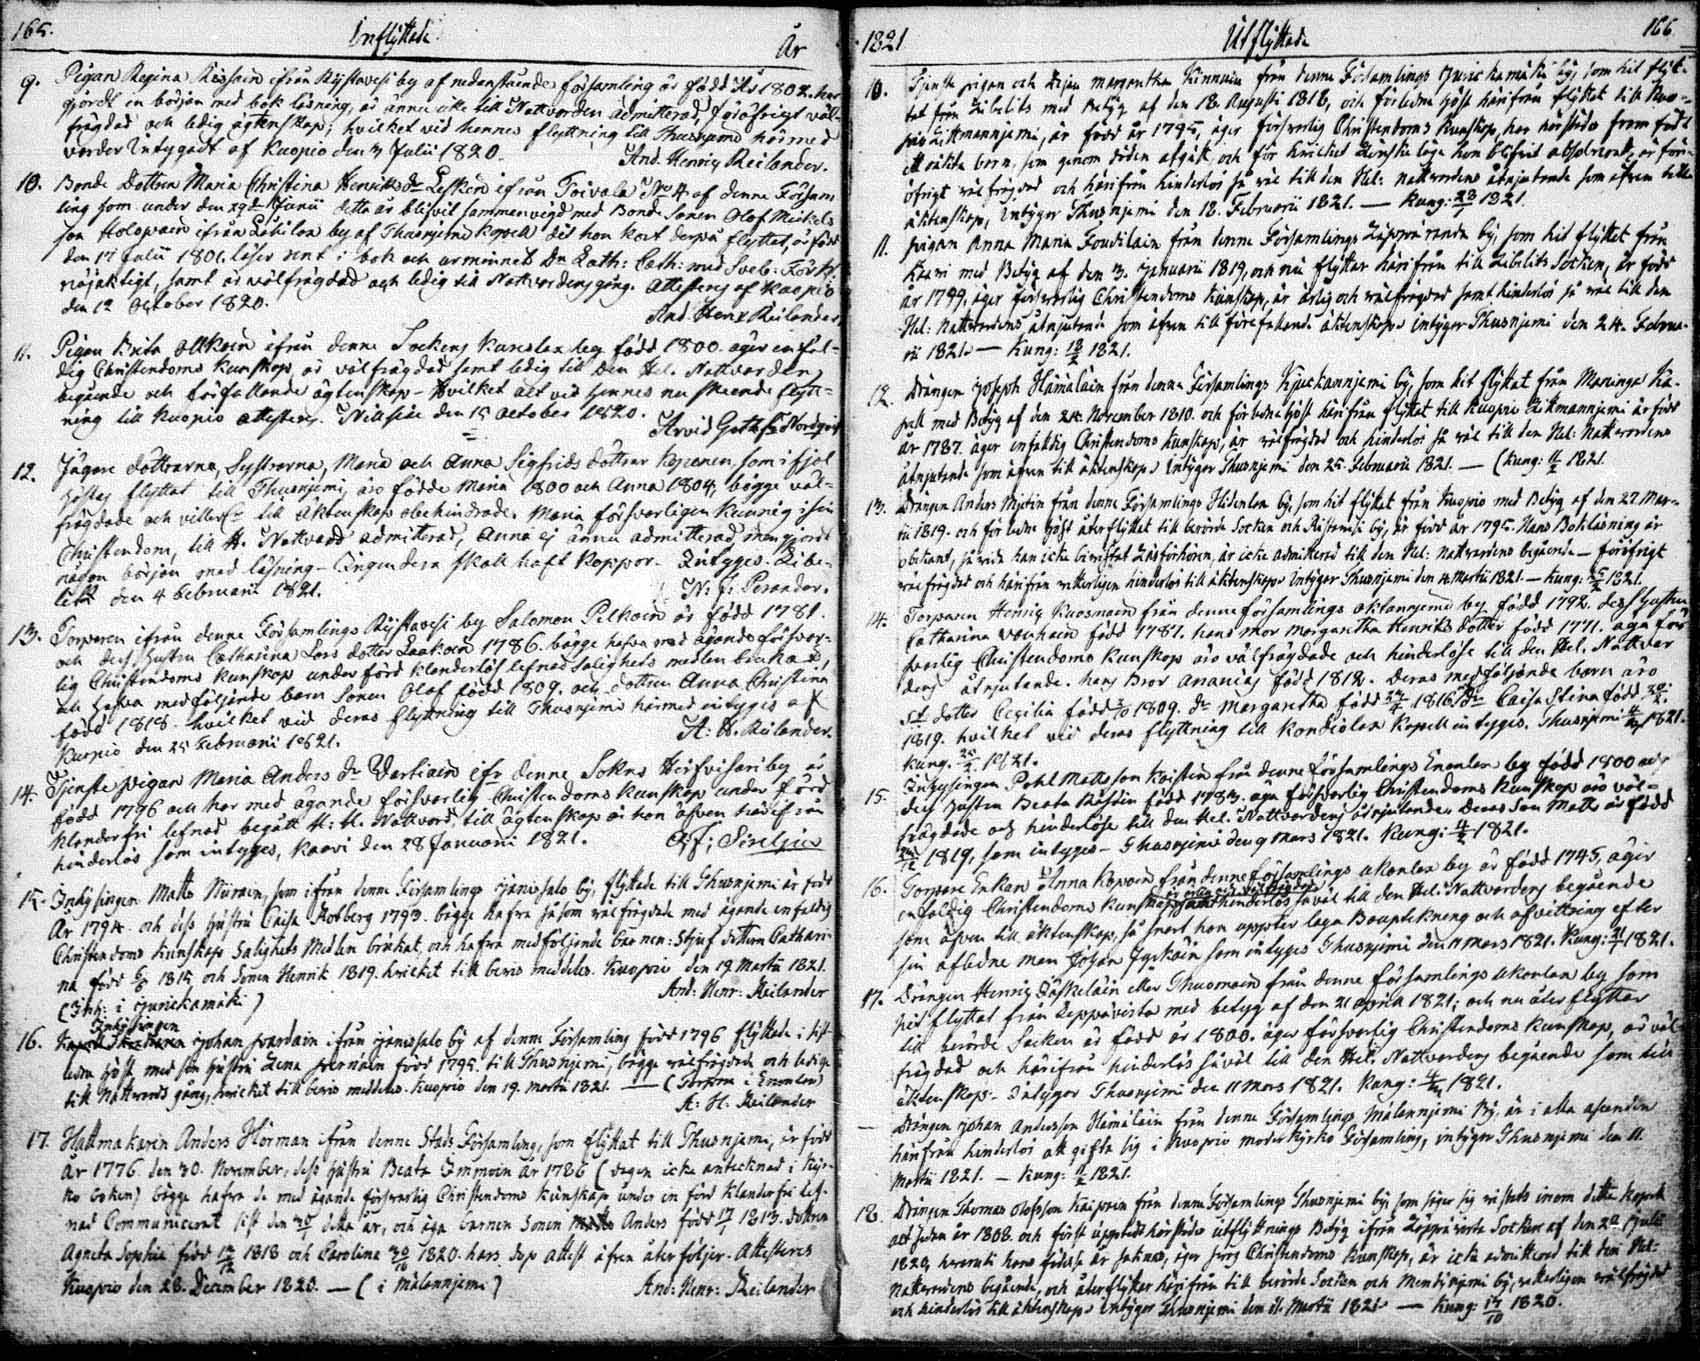 165. Inflyttade År
9. Pigan Regina Rissain ifrån Rystavesi by af nedanstående församling är född Års 1802. har
gjordt en början med bok läsning, är ännu icke till Nattvorden admitterad, I öfrigt väl-
frägdad och ledig ägtenskap; hvilket vid hennes flyttning till Thusnjemi härmed
varder Intygadt af Kuopio den 3 Julii 1820.
And. Henric Reilander.
10. Bonde Dottren Maria Christina Henriks dr Leskein ifrån Toivala No 4 af denne Försam
ling som under den 29de Junii detta år blifvit sammanvigd med Bonde Sonen Olof Mickels
son Holopain ifrån by af Thusnjemi Kapell dit hon kort derpå flyttat, är född
den 17 Julii 1801. läser rent i bok och ur minnet Dr Luth: Cath: med Sveb: Förkl.
nöjaktigt, samt är välfrägdad och ledig till Nattvardens gång. Attesteras af Kuopio
den 12 October 1820.
And. Henr Reilander
11. Pigan Brita ifrån denne Sockens by född 1800. äger enfal-
dig Christendoms kunskap, är välfrägdad samt ledig till Den Hel. Nattvarden
begående och förfallande ägtenskap - hvilket alt vid hennes nu skeende flytt-
ning till Kuopio attesteras. Nilsiä den 15 October 1820.
Arvid Gothfr Nordqvist
12. Jägare döttrarna, Systrarna, Maria och Anna Sigfrids döttrar Koponen, som i fjol
höstas flyttat till Thusnjemi, äro födde Maria 1800 och Anna 1804, bägge väl-
frägdade och till äktenskap obehindrade. Maria försvarligen kunnig i sin
Christendom, till H. Nattvard admitterad, Anna ej ännu admitterad, men gjordt
någon början med läsning - Ingendera skall haft koppor. Intygas. Libe-
litz den 4 Februarii 1821.
N: J: Perander.
13. Torparen ifrån denne Församlings Rystavesi by Salomon Pitkain är född 1781.
och dess Hustru Catharina Lars dotter 1786. bägge hafva med ägande försvar-
lig Christendoms kunskap under förd klanderlös lefnad Salighets medlen brukat,
och hafva medföljande barn Sonen Olof född 1809. och dottren Anna Christina
född 1818. hvilket vid deras flyttning till Thusnjemi härmed intygas af
Kuopio den 25 Februarii 1821.
A: H. Reilander.
14. Tjenste pigan Maria Anders dr ifr denne Sokns Hirfvisari by är
född 1796 och har med ägande försvarlig Christendoms kunskap under förd
klanderfri lefnad begått H: H. Nattvard, till ägtenskap är hon äfven härifrån
hinderlös som intygas, Kaavi den 28 Januarii 1821.
A. F: Sirelius
15. Inhysingen Matts Nurain, som ifrån denne Församlings Jännevsalo by, flyttade till Thusnjemi är född
År 1794. och dess hustru Caisa Kobberg 1793. bägge hafva såsom välfrägdade med ägande enfaldig
Christendoms kunskap Salighets Medlen brukat, och hafva medföljende Barnen: Stjuf dottern Cathari-
na född 5/6 1815 och Sonen Henrik 1819. hvilket till bevis meddeles. Kuopio den 19 Martii 1821.
(Inh: i Jurickamäki)
And: Henr: Reilander
16. Inhysingen Johan ifrån Jännevsalo by af denne Församling född 1796 flyttade i sist-
ledne höst med sin hustru Lena född 1795. till Thusnjemi, bägge välfrägdade och ledige
till Nattvards gång, hvilket till bevis meddeles. Kuopio den 19. Martii 1821. — (Torpare i Enonlax)
A: H. Reilander
17. Hattmakaren Anders Hörman ifrån denne Stads Församling, som flyttat till Thusnjemi, är född
År 1776. den 30. November, dess hustru Beata Immoin År 1786 (dagen icke antecknad i Kyr-
ko boken) bägge hafva de med ägande försvarlig Christendoms kunskap under en förd klanderfri lef-
nad Communicerat sist den detta år, och äga barnen Sonen Anders född 17/ 1813. dottren
Agneta Sophia född 1818 och Carolina 30/10 1820. hvars dop attest äfven återföljer. Attesteras
Kuopio den 28. December 1820. — (i Målannjemi)
And: Henr: Reilander
1821 Utflyttade 166
10. Tjenste pigan och Margaretha Kinnuin från denne Församlings Jurickamäki by, som hit flyt-
tat från Libelits med Betyg af den 18 Augusti 1818, och förledne höst härifrån flyttat till Kuo-
pio Litmannjemi, är född år 1795, äger försvarlig Christendoms kunskap, har härstädes fram födt
ett oäkta barn, som genom döden afgått, och för hvilket hon blifvit absolverad, är för-
öfrigt välfrägdad och härifrån hinderlös så väl till den Hel: nattvardens åtnjutande som äfven till
äktenskap, Intygar Thusnjemi den 18. Februarii 1821. — Kung: 23/ 1821.
11. Pigan Anna Maria Toudilain från denne Församlings by, som hit flyttat från
Kaavi med Betyg af den 3. Januarii 1819, och nu flyttar härifrån till Libelits Socken, är född
år 1799, äger försvarlig Christendoms kunskap, är ärlig och välfrägdad samt hinderlös så väl till den
Hel: nattvardens åtnjutande som äfven till förefallande äktenskap. Intygar Thusnjemi den 24. Februa-
rii 1821. — Kung: 18/2 1821.
12. Drängen Joseph Hämäläin från denne Församlings by, som hit flyttat från Maninga Ka-
pell med Betyg af den 24. November 1810. och förledne höst härifrån flyttat till Kuopio Litmannjemi är född
år 1787. äger enfaldig Christendoms kunskap, är välfrägdad och hinderlös så väl till den Hel: Nattvardens
åtnjutande som äfven till äktenskap. Intygar Thusnjemi den 25. Februarii 1821. — (Kung: 11/2 1821.
13. Drängen Anders Mjetin från denne Församlings Hidenlax by, som hit flyttat från Kuopio med Betyg af den 27 Mar-
tii 1819. och förledne höst återflyttat till berörde Socken och by, är född år 1795. Hans Bokläsning är
obekant, ty redan han icke bevistat Läsförhören, är icke admitterad till den Hel: nattvardens begående — föröfrigt
välfrägdad och härifrån vitterligen hinderlös till äktenskap. Intygar Thusnjemi den 4 Martii 1821. — Kung: 1821.
14. Torparen Henric Kuosmain från denne församlings by född 1792. dess Hustru
Catharina född 1787. hans mor Margaretha Henriks dotter född 1771. äga för-
svarlig Christendoms kunskap äro välfrägdade och hinderlöse till den Hel. Nattvar
dens åtnjutande. hans Bror Ananias född 1812. deras medföljande barn äro
dotter Cecilia född 1809. Dr Margaretha född 1816. Dr Caisa Stina född
1819. hvilket vid deras flyttning till Kondiolax Kapell intygas. Thusnjemi 1821.
Kung. 25/2 1821.
15. Inhysingen Pehl Matsson från denne församlings Enonlax by född 1800 och
dess hustru Beata född 1783. äga försvarlig Christendoms kunskap äro väl-
frägdade och hinderlöse till den Hel. Nattvardens åtnjutande. Deras son Matts är född
1819, som intygas - Thusnjemi den 9 Mars 1821. Kung: 4/ 1821.
16. Torpare Enkan Anna från denne församlings by är född 1745, äger
enfaldig Christendoms kunskap, är ärlig och välfrägdad samt hinderlös såväl till den Hel: Nattvardens begående
som äfven till äktenskap, så snart hon uppter laga Bouptekning och afvittring efter
sin aflidne man Johan som intygas Thusnjemi den 11 Mars 1821. Kung: 1821.
17. Drängen Henric Jäskeläin eller Thuomain från denne församlings by som
hit flyttat från Leppävirta med betyg af den 21 April 1821; och nu åter flyttar
till berörde Socken är född år 1800. äger försvarlig Christendoms kunskap, är väl-
frägdad och härifrån hinderlös såväl till den Hel. Nattvardens begående som till
äktenskap. Intygar Thusnjemi den 11 Mars 1821. Kung: 4/ 1821.
— Drängen Johan Andersson Hämäläin från denne Församlings Målannjemi By, är i alla afseenden
härifrån hinderlös att gifta sig i Kuopio moder Kyrko Församling, intygar Thusnjemi den 11.
Martii 1821. — Kung: 11/2 1821.
18. Drängen Thomas Olofsson från denne Församlings Thusnjemi by, som säger sig vistats inom detta Kapell
allt sedan år 1808. och först uppvist härstädes utflyttnings Betyg ifrån Leppävirta Socken af den 20 Julii
1820, hvaruti hans födelse år saknas, äger svag Christendoms kunskap, är icke admitterad till den Hel:
nattvardens begående, och återflyttar härifrån till berörde Socken och by, vitterligen välfrägdad
och hinderlös till äktenskap. Intygar Thusnjemi den 11. Martii 1821. — Kung: 15/10 1820.